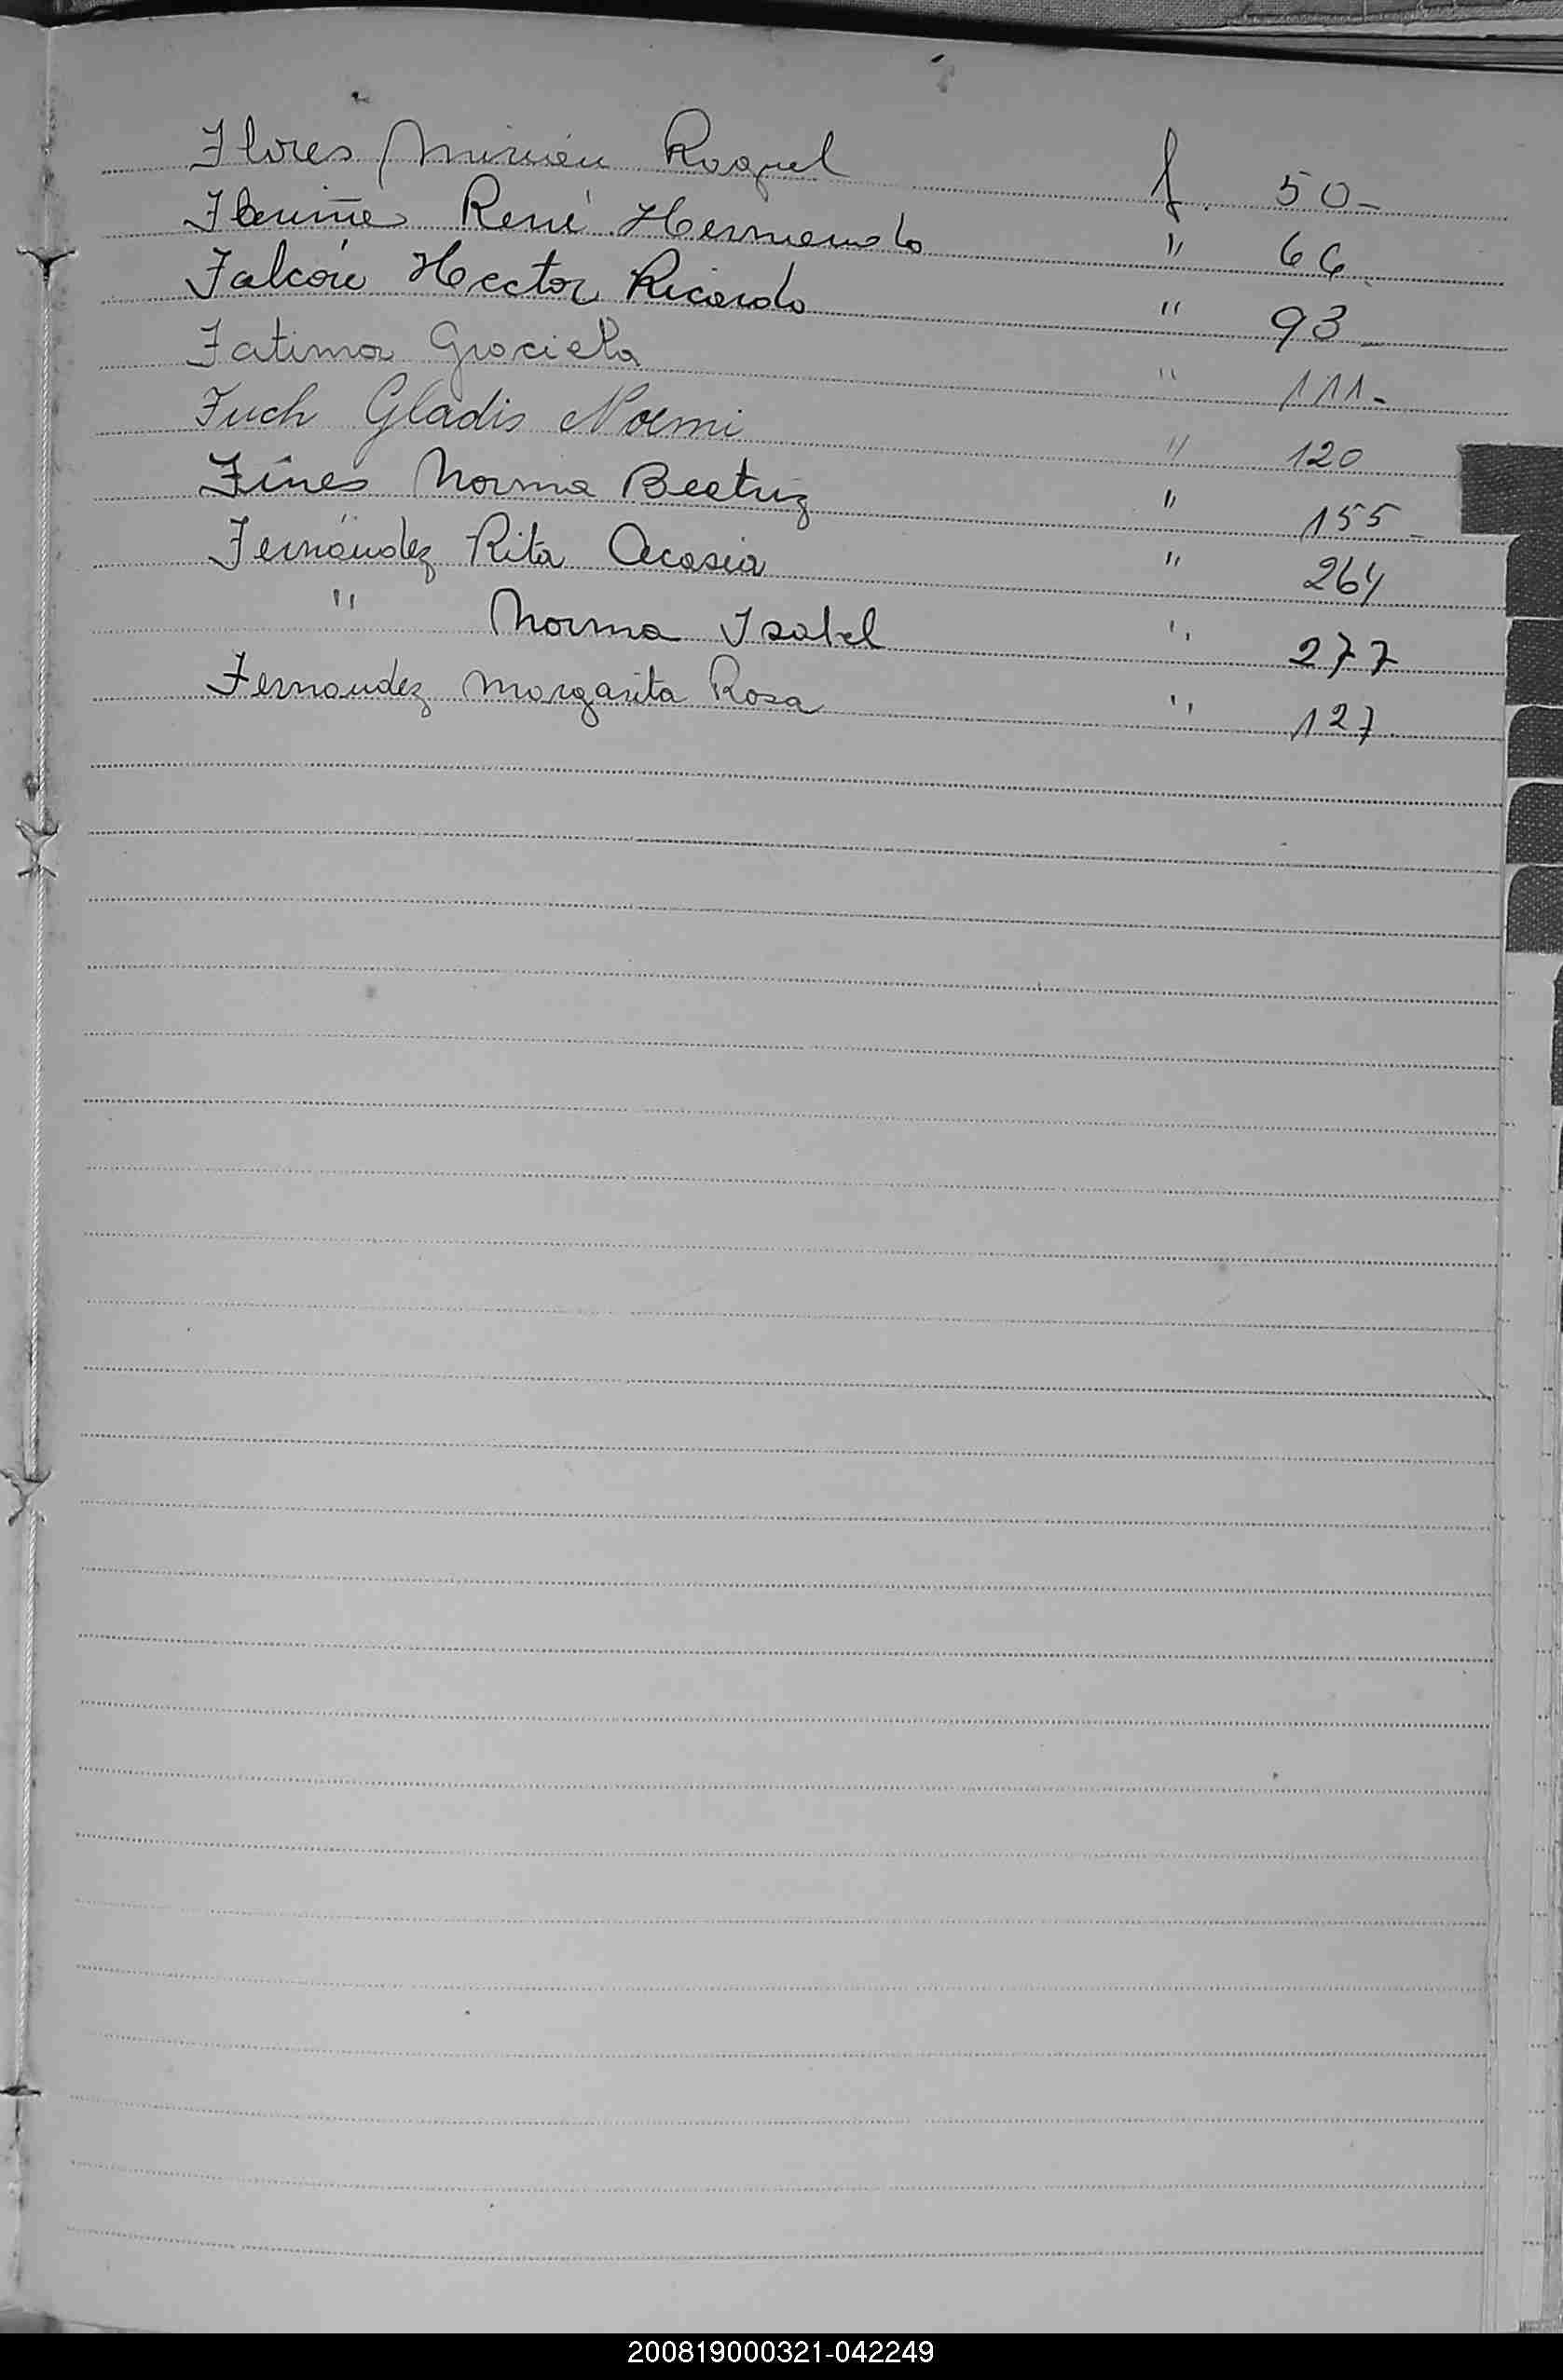 Flores Mirian Raquel f. 50-
René Hernando " 66
Falcón Hector Ricardo " 93
Fatima Graciela " 111-
Fuch Gladis Noemi " 120
Fines Norma Beatriz " 155
Fernández Rita Acasia " 264
" Norma Isabel " 277
Fernandez Margarita Rosa " 127
200819000321-042249